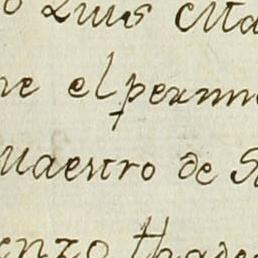 Luis Ma
ne el permi
Maestro de S
enzo thade